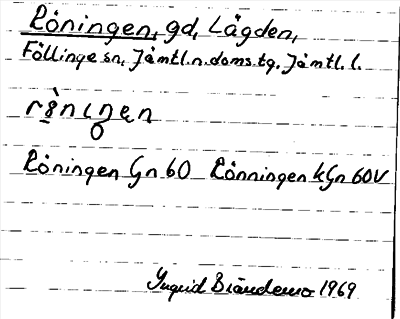 Röningen, gd, Lågden,
Föllinge sn, Jämtl.n.doms.tg. Jämtl.l.
Röningen Gn 60 Rönningen kGn 60V
Ingrid Brändemo 1969